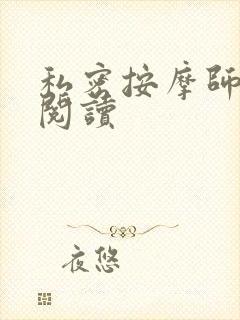 私密按摩師
閱讀
夜悠